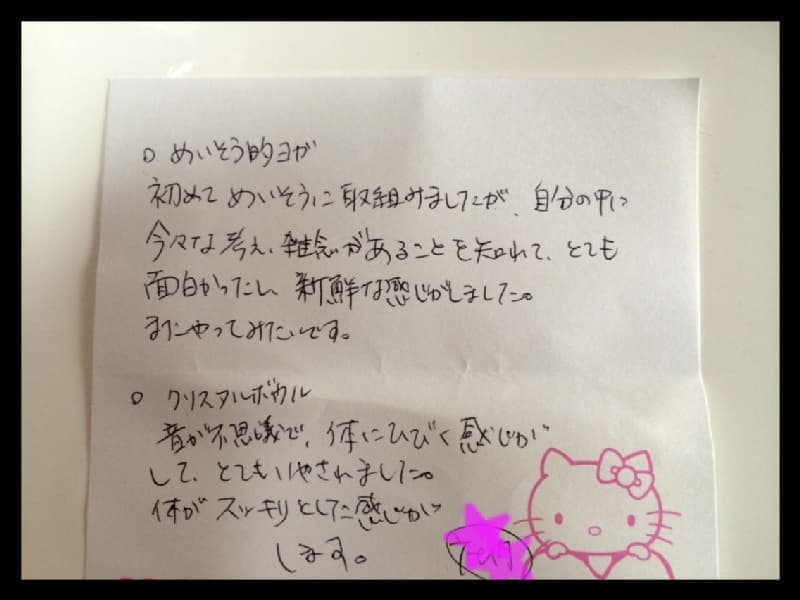 ○ めいそう的ヨガ
初めて めいそうに取組みましたが、自分の中に
今々な考え、雑念があることを知れて、とても
面白かったし、新鮮な感じがしました。
またやってみたいです。
○ クリスタルボウル
音が不思議で、体にひびく感じが
して、とてもいやされました。
体がスッキリとした感じが
します。